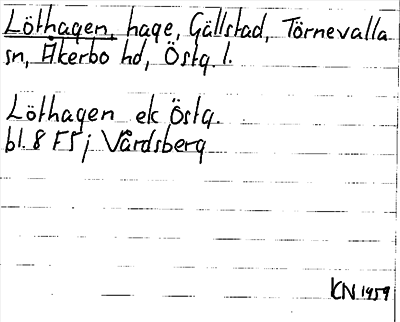 Löthagen, hage, Gällstad, Törnevalla
sn, Åkerbo hd, Östg. l.
Löthagen ek Östg.
bl. 8 FS j Vårdsberg
KN 1959